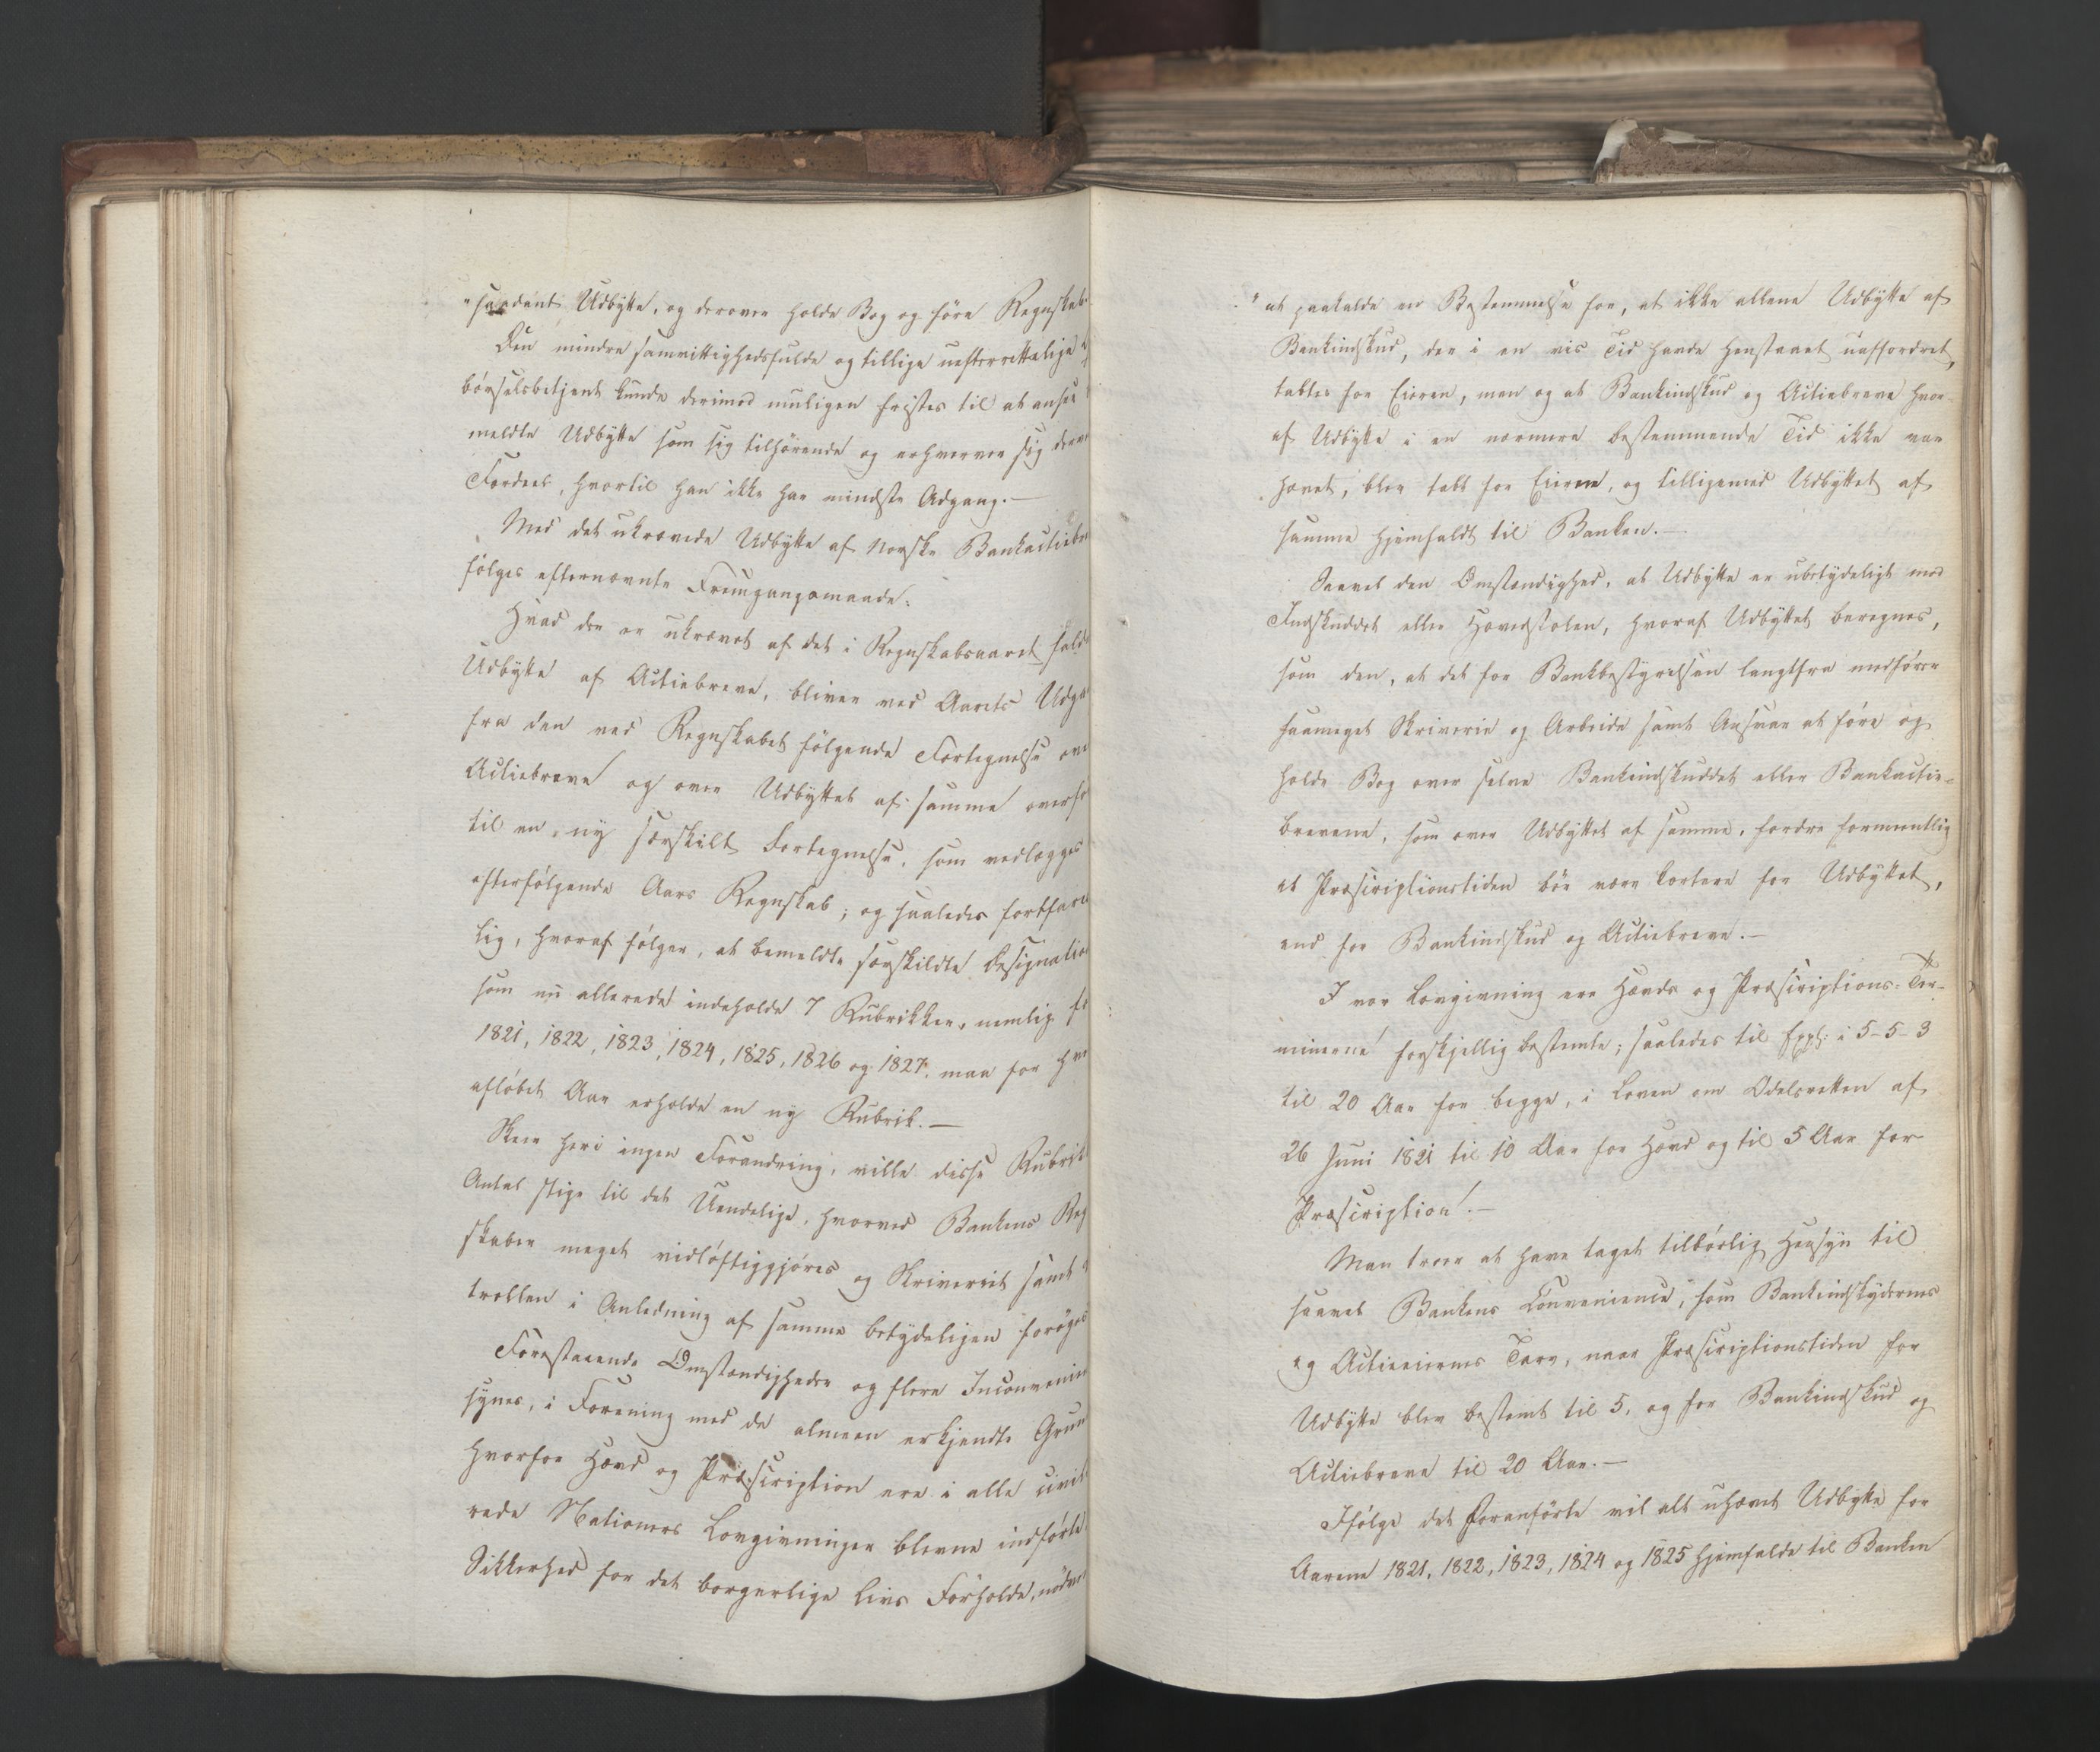 "saadant Udbytte, og derover holde Bog og føre Regnskab.
Den mindre samvittighedsfulde og tillige uefterrettelige
børselsbetjent kunde derimod muligen fristes til at ansee
meldte Udbytte som sig tilhørende og erhverver sig derved
Fordeel, hvortil han ikke har mindste Adgang.—
Med det ukrævede Udbytte af norske Bankactiebre
følges efternævnte Fremgangsmaade:
Hvad der er ukrævet af det i Regnskabsaaret fald
Udbytte af Actiebreve, bliver ved Aarets Udga
fra den ved Regnskabet følgende Fortegnelse ove
Actiebreve og over Udbyttet af samme overfø
til en ny særskilt Fortegnelse, som vedlægges
efterfølgende Aars Regnskab; og saaledes fortfare
lig, hvoraf følger, at bemeldte særskildte Designatio
som nu allerede indeholde 7 Rubrikker, nemlig fo
1821, 1822, 1823, 1824, 1825, 1826 og 1827, maa for hve
afløbet Aar erholde en ny Rubrik.—
Skeer heri ingen Forandring, ville disse Rubrik
Antal stige til det Uendelige, hvorved Bankens Reg
skaber meget vidløftiggjøres og Skriveriet samt
trollen i Anledning af samme betydeligen forøges
Forestaaende Omstændigheder og flere Inconvenien
synes, i Forening med de almeen erkjendte Grun
hvorfor Hævd og Præscription ere i alle civili
rede Nationers Lovgivninger blevne indførte
Sikkerhed for det borgerlige Livs Forholde, nødve
" at paakalde en Bestemmelse for, at ikke allene Udbytte af
Bankindskud, der i en vis Tid havde henstaaet uaffordret,
tabtes for Eieren, men og at Bankindskud og Actiebreve hvor-
af Udbytte i en nærmere bestemmende Tid ikke var
hævet, blev tabt for Eieren, og tilligemed Udbyttet af
samme hjemfaldt til Banken.—
Saavel den Omstændighed, at Udbytte er ubetydeligt mod
Indskuddet eller Hovedstolen, hvoraf Udbyttet beregnes,
som den, at det for Bankbestyrelsen langtfra medfører
saameget Skriverie og Arbeide samt Ansvar at føre og
holde Bog over selve Bankindskuddet eller Bankactie-
brevene, som over Udbyttet af samme, fordre formeentlig
at Præscriptionstiden bør være kortere for Udbyttet,
end for Bankindskud og Actiebreve.—
I vor Lovgivning ere Hævds og Præscriptions-Ter-
minerne forskjellig bestemte; saaledes til Expl: i 5-5-3
til 20 Aar for begge, i Loven om Odelsretten af
26 Juni 1821 til 10 Aar for Hævd og til 5 Aar for
Præscription.—
Man troer at have taget tilbørlig Hensyn til
saavel Bankens Convenience, som Bankindskydernes
og Actieeiernes Tarv, naar Præscriptionstiden for
Udbytte blev bestemt til 5, og for Bankindskud og
Actiebreve til 20 Aar.—
Ifølge det Foranførte vil alt uhævet Udbytte for
Aarene 1821, 1822, 1823, 1824 og 1825 hjemfalde til Banken